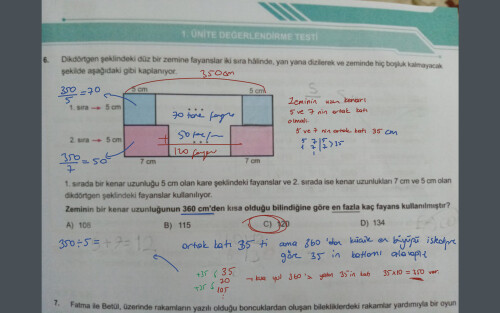 1. ÜNİTE DEĞERLENDİRME TESTİ
6. Dikdörtgen şeklindeki düz bir zemine fayanslar iki sıra hâlinde, yan yana dizilerek ve zeminde hiç boşluk kalmayacak
şekilde aşağıdaki gibi kaplanıyor.
350cm
5 cm
5 cm
350/5 = 70
1. sıra → 5 cm
70 tane fayans
Zeminin uzun kenarı
5 ve 7 nin ortak katı
olmalı.
5 ve 7 nin ortak katı 35 cm
2. sıra → 5 cm
+ 50 tane
350/7 = 50
120 fayans
7 cm
7 cm
1. sırada bir kenar uzunluğu 5 cm olan kare şeklindeki fayanslar ve 2. sırada ise kenar uzunlukları 7 cm ve 5 cm olan
dikdörtgen şeklindeki fayanslar kullanılıyor.
Zeminin bir kenar uzunluğunun 360 cm'den kısa olduğu bilindiğine göre en fazla kaç fayans kullanılmıştır?
A) 108
B) 115
C) 120
D) 134
350÷5=
ortak katı 35 ti ama 360'dan küçük en büyüğü isteniyor
göre 35 in katlarını
+35 35
+35 70
105
35x10=350
7. Fatma ile Betül, üzerinde rakamların yazılı olduğu boncuklardan oluşan bilekliklerdeki rakamlar yardımıyla bir oyun